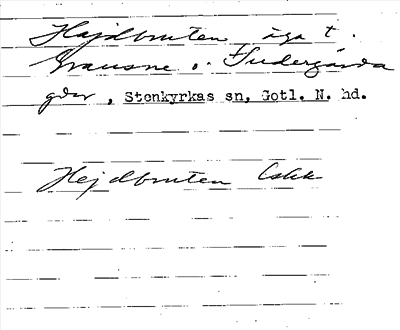 Hajdbruten äga t.
Grausne o. Sudergårda
gdar, Stenkyrkas sn, Gotl. N. hd.
Hejdbruten